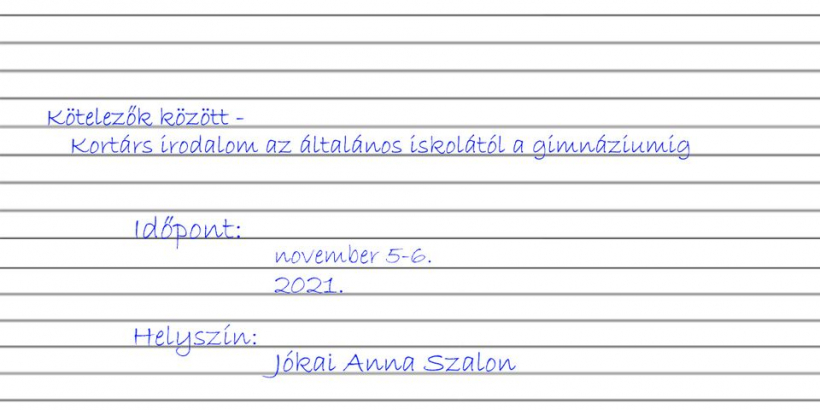 Kötelezők között -
Kortárs irodalom az általános iskolától a gimnáziumig
Időpont:
november 5-6.
2021.
Helyszín:
Jókai Anna Szalon